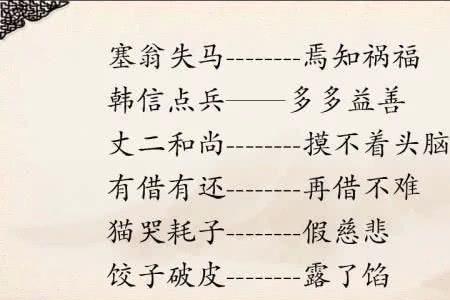 塞翁失马--------焉知祸福
韩信点兵——多多益善
丈二和尚--------摸不着头脑
有借有还--------再借不难
猫哭耗子--------假慈悲
饺子破皮--------露了馅